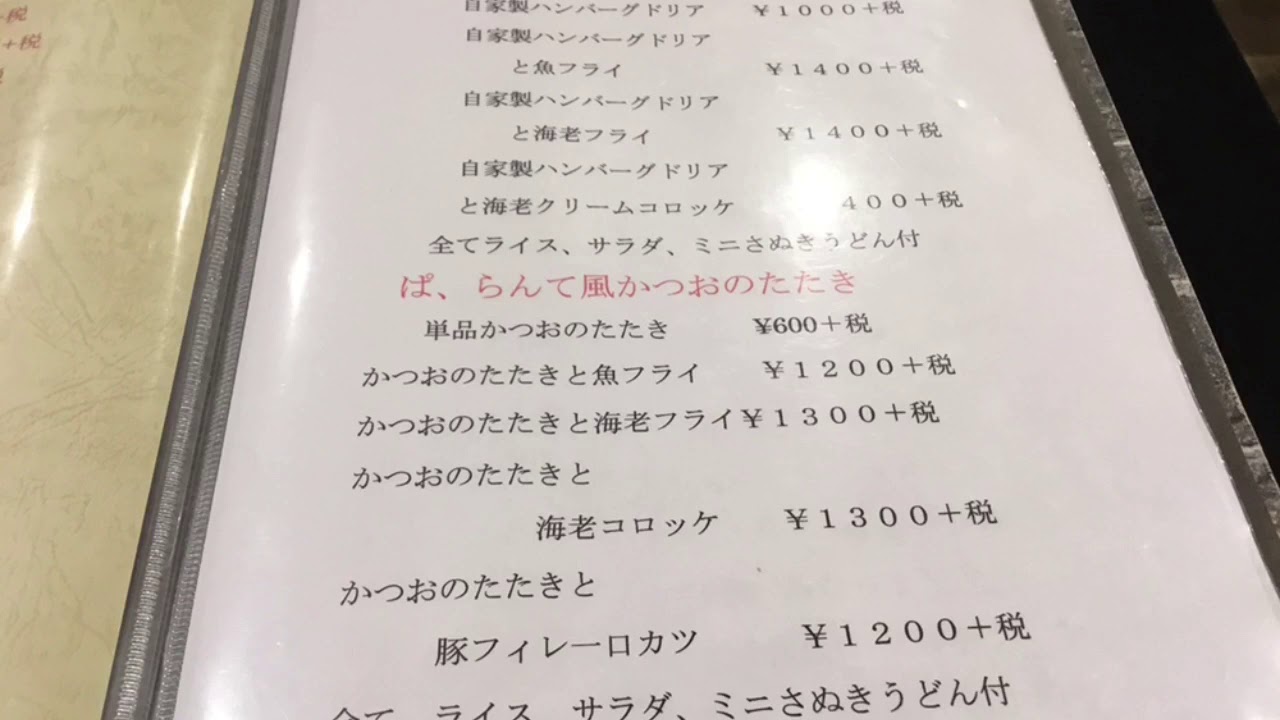 +税
+税
税
自家製ハンバーグドリア ￥１０００＋税
自家製ハンバーグドリア
と魚フライ ￥１４００＋税
自家製ハンバーグドリア
と海老フライ ￥１４００＋税
自家製ハンバーグドリア
と海老クリームコロッケ ４００＋税
全てライス、サラダ、ミニさぬきうどん付
ぱ、らんて風かつおのたたき
単品かつおのたたき ¥600＋税
かつおのたたきと魚フライ ￥１２００＋税
かつおのたたきと海老フライ￥１３００＋税
かつおのたたきと
海老コロッケ ￥１３００＋税
かつおのたたきと
豚フィレ一口カツ ￥１２００＋税
全て、ライス、サラダ、ミニさぬきうどん付